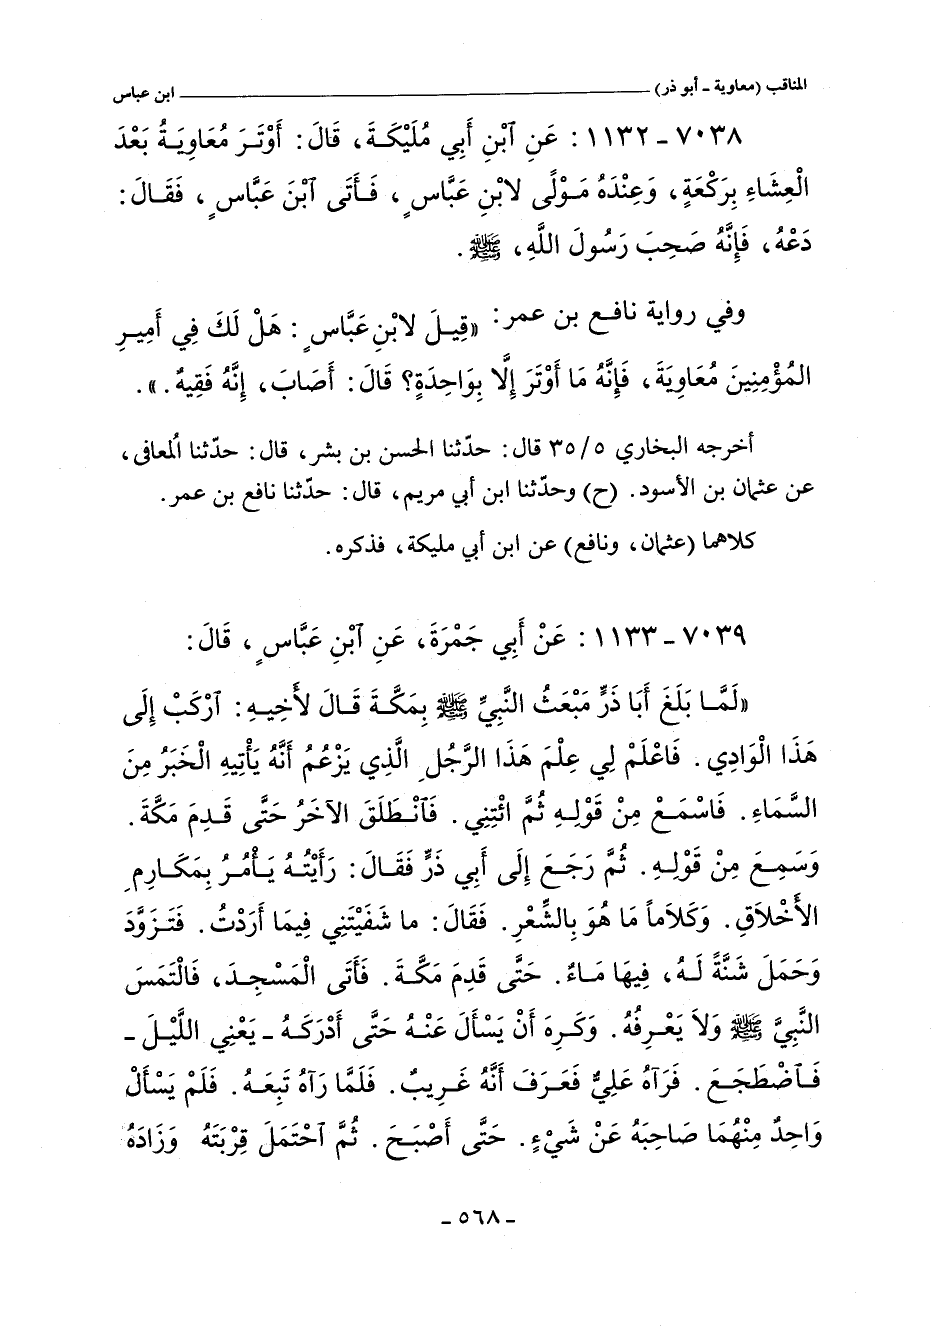 المناقب (معاوية - أبو ذر) ابن عباس
٧٠٣٨ - ١١٣٢ : عَنِ ٱبْنِ أَبِي مُلَيْكَةَ، قَالَ: أَوْتَرَ مُعَاوِيَةُ بَعْدَ
الْعِشَاءِ بِرَكْعَةٍ، وَعِنْدَهُ مَوْلًى لابْنِ عَبَّاسٍ، فَأَتَى ٱبْنَ عَبَّاسٍ، فَقَالَ:
دَعْهُ، فَإِنَّهُ صَحِبَ رَسُولَ اللَّهِ، ﷺ.
وفي رواية نافع بن عمر: «قِيلَ لابْنِ عَبَّاسٍ: هَلْ لَكَ فِي أَمِيرِ
المُؤْمِنِينَ مُعَاوِيَةَ، فَإِنَّهُ مَا أَوْتَرَ إِلَّا بِوَاحِدَةٍ؟ قَالَ: أَصَابَ، إِنَّهُ فَقِيهٌ.».
أخرجه البخاري ٥/٣٥ قال: حدّثنا الحسن بن بشر، قال: حدّثنا المُعافى،
عن عثمان بن الأسود. (ح) وحدّثنا ابن أبي مريم، قال: حدّثنا نافع بن عمر.
كلاهما (عثمان، ونافع) عن ابن أبي مليكة، فذكره.
٧٠٣٩ - ١١٣٣ : عَنْ أَبِي جَمْرَةَ، عَنِ ٱبْنِ عَبَّاسٍ، قَالَ:
«لَمَّا بَلَغَ أَبَا ذَرٍّ مَبْعَثُ النَّبِيِّ ﷺ بِمَكَّةَ قَالَ لأَخِيهِ: ٱرْكَبْ إِلَى
هَذَا الْوَادِي. فَاعْلَمْ لِي عِلْمَ هَذَا الرَّجُلِ الَّذِي يَزْعُمُ أَنَّهُ يَأْتِيهِ الْخَبَرُ مِنَ
السَّمَاءِ. فَاسْمَعْ مِنْ قَوْلِهِ ثُمَّ ائْتِنِي. فَٱنْطَلَقَ الآخَرُ حَتَّى قَدِمَ مَكَّةَ.
وَسَمِعَ مِنْ قَوْلِهِ. ثُمَّ رَجَعَ إِلَى أَبِي ذَرٍّ فَقَالَ: رَأَيْتُهُ يَأْمُرُ بِمَكَارِمِ
الأَخْلَاقِ. وَكَلَاماً مَا هُوَ بِالشِّعْرِ. فَقَالَ: ما شَفَيْتَنِي فِيمَا أَرَدْتُ. فَتَزَوَّدَ
وَحَمَلَ شَنَّةً لَهُ، فِيهَا مَاءٌ. حَتَّى قَدِمَ مَكَّةَ. فَأَتَى الْمَسْجِدَ، فَالْتَمَسَ
النَّبِيَّ ﷺ وَلاَ يَعْرِفُهُ. وَكَرِهَ أَنْ يَسْأَلَ عَنْهُ حَتَّى أَدْرَكَهُ - يَعْنِي اللَّيْلَ -
فَٱضْطَجَعَ. فَرَآهُ عَلِيٌّ فَعَرَفَ أَنَّهُ غَرِيبٌ. فَلَمَّا رَآهُ تَبِعَهُ. فَلَمْ يَسْأَلْ
وَاحِدٌ مِنْهُمَا صَاحِبَهُ عَنْ شَيْءٍ. حَتَّى أَصْبَحَ. ثُمَّ ٱحْتَمَلَ قِرْبَتَهُ وَزَادَهُ
- ٥٦٨ -